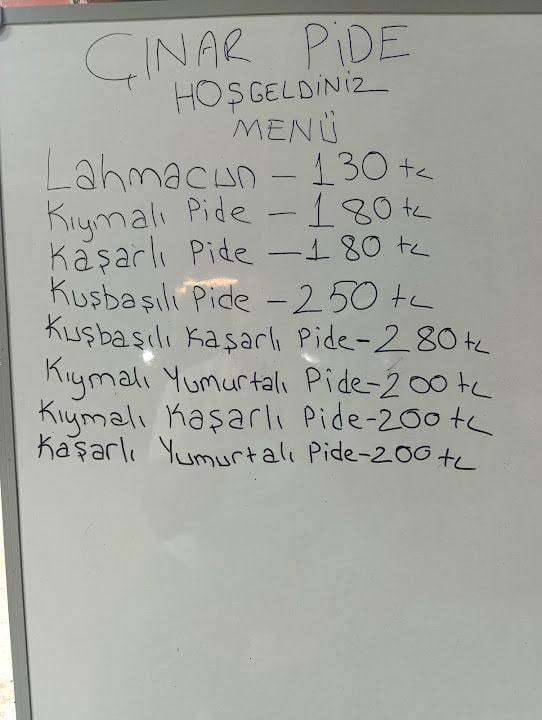 ÇINAR PİDE
HOŞGELDİNİZ
MENÜ
Lahmacun - 130 tL
Kıymalı Pide - 180 tL
Kaşarlı Pide - 180 tL
Kuşbaşılı Pide - 250 tL
Kuşbaşılı Kaşarlı Pide - 280 tL
Kıymalı Yumurtalı Pide - 200 tL
Kıymalı Kaşarlı Pide - 200 tL
Kaşarlı Yumurtalı Pide - 200 tL